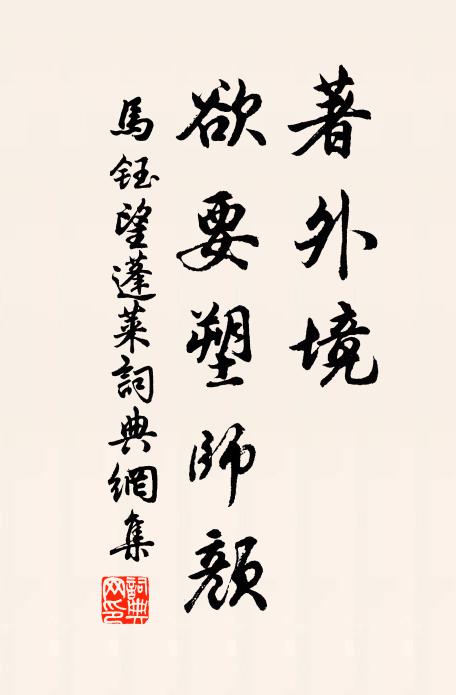 著外境
欲要塑師顏
馬鈺望蓬萊詞典網集
詞典網印